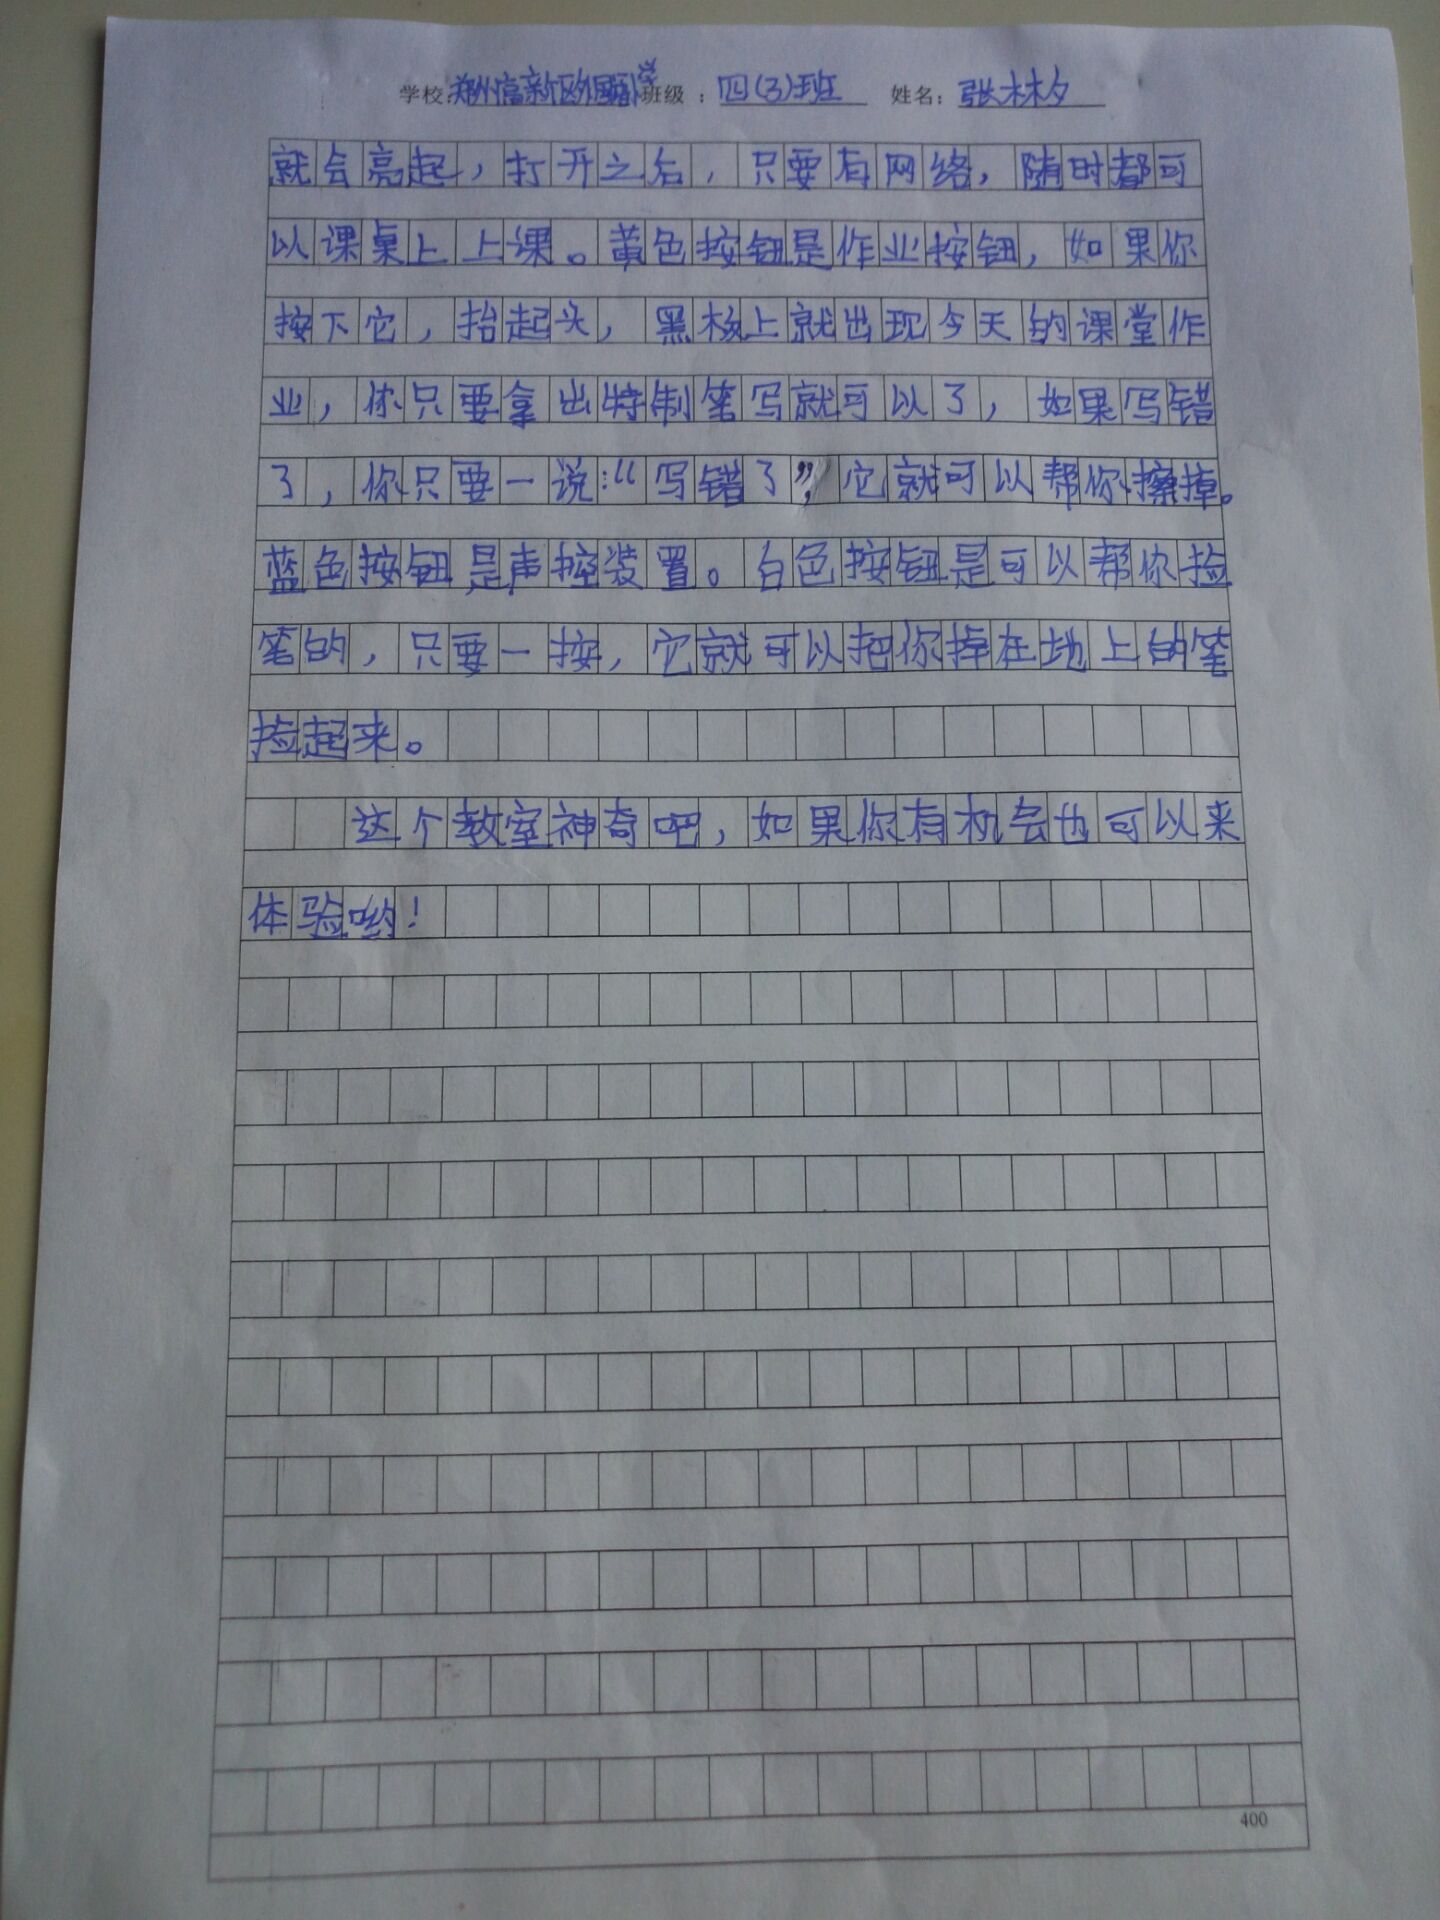 学校:郑州高新区外国语小学 班级:四(3)班 姓名:张林夕
就会亮起，打开之后，只要有网络，随时都可
以课桌上上课。黄色按钮是作业按钮，如果你
按下它，抬起头，黑板上就出现今天的课堂作
业，你只要拿出特制笔写就可以了，如果写错
了，你只要一说：“写错了”，它就可以帮你擦掉。
蓝色按钮是声控装置。白色按钮是可以帮你捡
笔的，只要一按，它就可以把你掉在地上的笔
捡起来。
这个教室神奇吧，如果你有机会也可以来
体验哟！
400